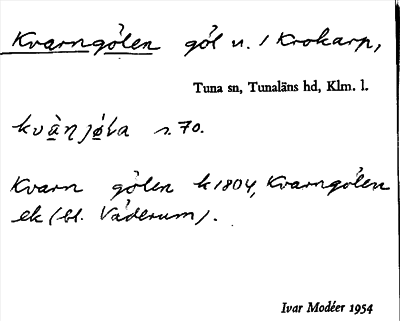 Kvarngölen göl n. / Krokarp,
Tuna sn, Tunaläns hd, Klm. l.
s. 70.
Kvarn gölen k 1804, Kvarngölen
ek (bl. Våderum).
Ivar Modéer 1954